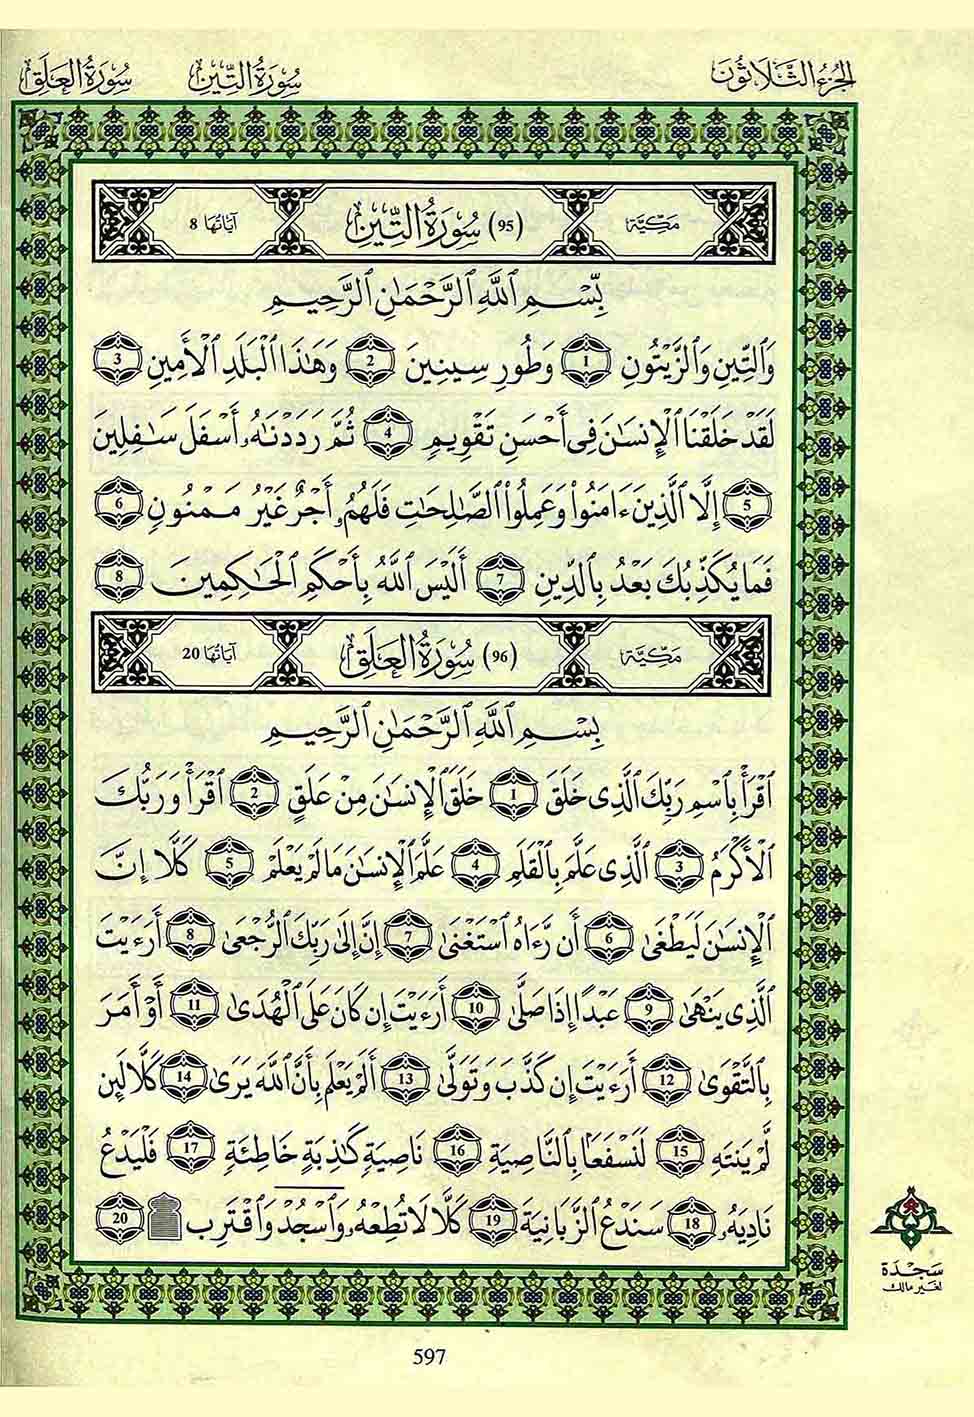 الجزء الثلاثون سورة التين سورة العلق
مكية (95) سورة التين آياتها 8
بِّسْمِ ٱللَّهِ ٱلرَّحْمَٰنِ ٱلرَّحِيمِ
وَٱلتِّينِ وَٱلزَّيْتُونِ 1 وَطُورِ سِينِينَ 2 وَهَٰذَا ٱلْبَلَدِ ٱلْأَمِينِ 3
لَقَدْ خَلَقْنَا ٱلْإِنسَٰنَ فِى أَحْسَنِ تَقْوِيمٍ 4 ثُمَّ رَدَدْنَٰهُ أَسْفَلَ سَٰفِلِينَ
5 إِلَّا ٱلَّذِينَ ءَامَنُوا۟ وَعَمِلُوا۟ ٱلصَّٰلِحَٰتِ فَلَهُمُۥٓ أَجْرٌ غَيْرُ مَمْنُونٍ 6
فَمَا يُكَذِّبُكَ بَعْدُ بِٱلدِّينِ 7 أَلَيْسَ ٱللَّهُ بِأَحْكَمِ ٱلْحَٰكِمِينَ 8
مكية (96) سورة العلق آياتها 20
بِسْمِ ٱللَّهِ ٱلرَّحْمَٰنِ ٱلرَّحِيمِ
ٱقْرَأْ بِٱسْمِ رَبِّكَ ٱلَّذِى خَلَقَ 1 خَلَقَ ٱلْإِنسَٰنَ مِنْ عَلَقٍ 2 ٱقْرَأْ وَرَبُّكَ
ٱلْأَكْرَمُ 3 ٱلَّذِى عَلَّمَ بِٱلْقَلَمِ 4 عَلَّمَ ٱلْإِنسَٰنَ مَا لَمْ يَعْلَمْ 5 كَلَّا إِنَّ
ٱلْإِنسَٰنَ لَيَطْغَىٰ 6 أَن رَّءَاهُ ٱسْتَغْنَىٰ 7 إِنَّ إِلَىٰ رَبِّكَ ٱلرُّجْعَىٰ 8 أَرَءَيْتَ
ٱلَّذِى يَنْهَىٰ 9 عَبْدًا إِذَا صَلَّىٰ 10 أَرَءَيْتَ إِن كَانَ عَلَى ٱلْهُدَىٰ 11 أَوْ أَمَرَ
بِٱلتَّقْوَىٰ 12 أَرَءَيْتَ إِن كَذَّبَ وَتَوَلَّىٰ 13 أَلَمْ يَعْلَم بِأَنَّ ٱللَّهَ يَرَىٰ 14 كَلَّا لَئِن
لَّمْ يَنتَهِ 15 لَنَسْفَعًۢا بِٱلنَّاصِيَةِ 16 نَاصِيَةٍ كَٰذِبَةٍ خَاطِئَةٍ 17 فَلْيَدْعُ
نَادِيَهُۥ 18 سَنَدْعُ ٱلزَّبَانِيَةَ 19 كَلَّا لَا تُطِعْهُ وَٱسْجُدْ وَٱقْتَرِب ۩ 20
سجدة
لغير مالك
597